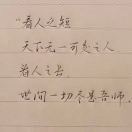 “看人之短
天下无一可交之人
看人之长
世间一切尽是吾师.